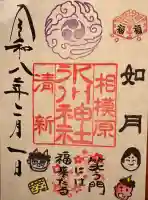 福
如月
相模原
氷川神社
清新
笑う門
には
福来たる
令和八年二月一日